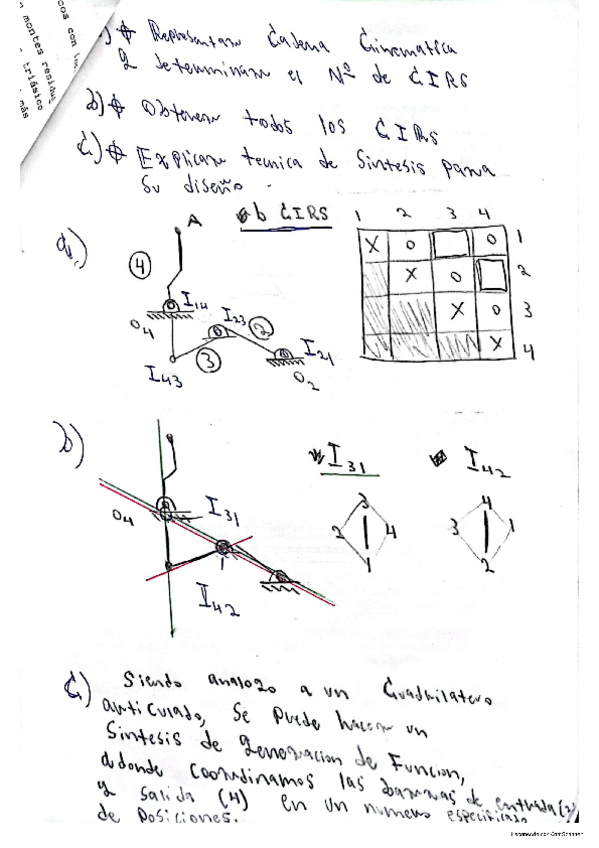 cos con
montes residu
triásico
más
a) Representar Cadena Cinematica
y determinar el Nº de CIRS
b) Obtener todos los CIRs
C.) Explicar tecnica de Sintesis para
su diseño.
a.)
A
6 CIRS
1 2 3 4
X O O 1
X O 2
X O 3
X 4
4
I14
O4
I23
2
3
I43
I21
O2
b)
I31
I42
O4
I31
I42
3
2 4
1
4
3 1
2
C) Siendo analogo a un Cuadrilatero
articulado, se puede hacer un
Sintesis de generacion de Funcion,
adonde coordinamos las barras de entrada(2)
y salida (4) en un numero especificado
de Posiciones.
Escaneado con CamScanner